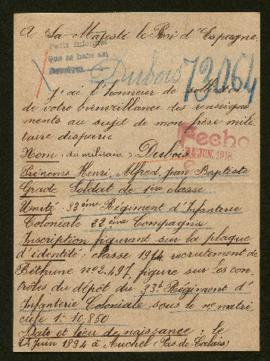 A Sa Majesté le Roi d'Espagne
Dubois 72064
J'ai l'honneur de solliciter
de votre bienveillance des renseigne
ments au sujet de mon frère mili
taire disparu
Fecho
JUN. 1918
Nom du militaire: Dubois
Prénoms Henri, Alfred, Jean Baptiste
Grade Soldat de 1ère classe
Unité 33ème Régiment d'Infanterie
Coloniale 22ème Compagnie
Inscription figurant sur la plaque
d'identité: classe 1914 recrutement de
Béthune no 2.497 figure sur les con
trôles du dépôt du 33e Régiment d'
Infanterie Coloniale sous le no matri
cule 1: 10,850
Date et lieu de naissance: le
Juin 1894 à Auchel (Pas de Calais)